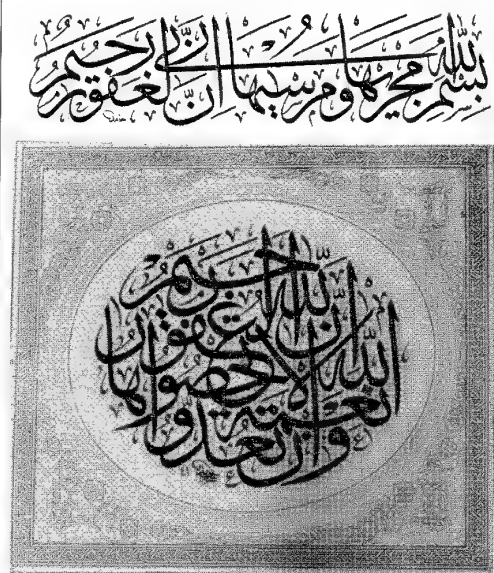 بسم الله مجريها ومرسيها ان ربي لغفور رحيم
وان تعدوا نعمة الله لا تحصوها ان الله لغفور رحيم